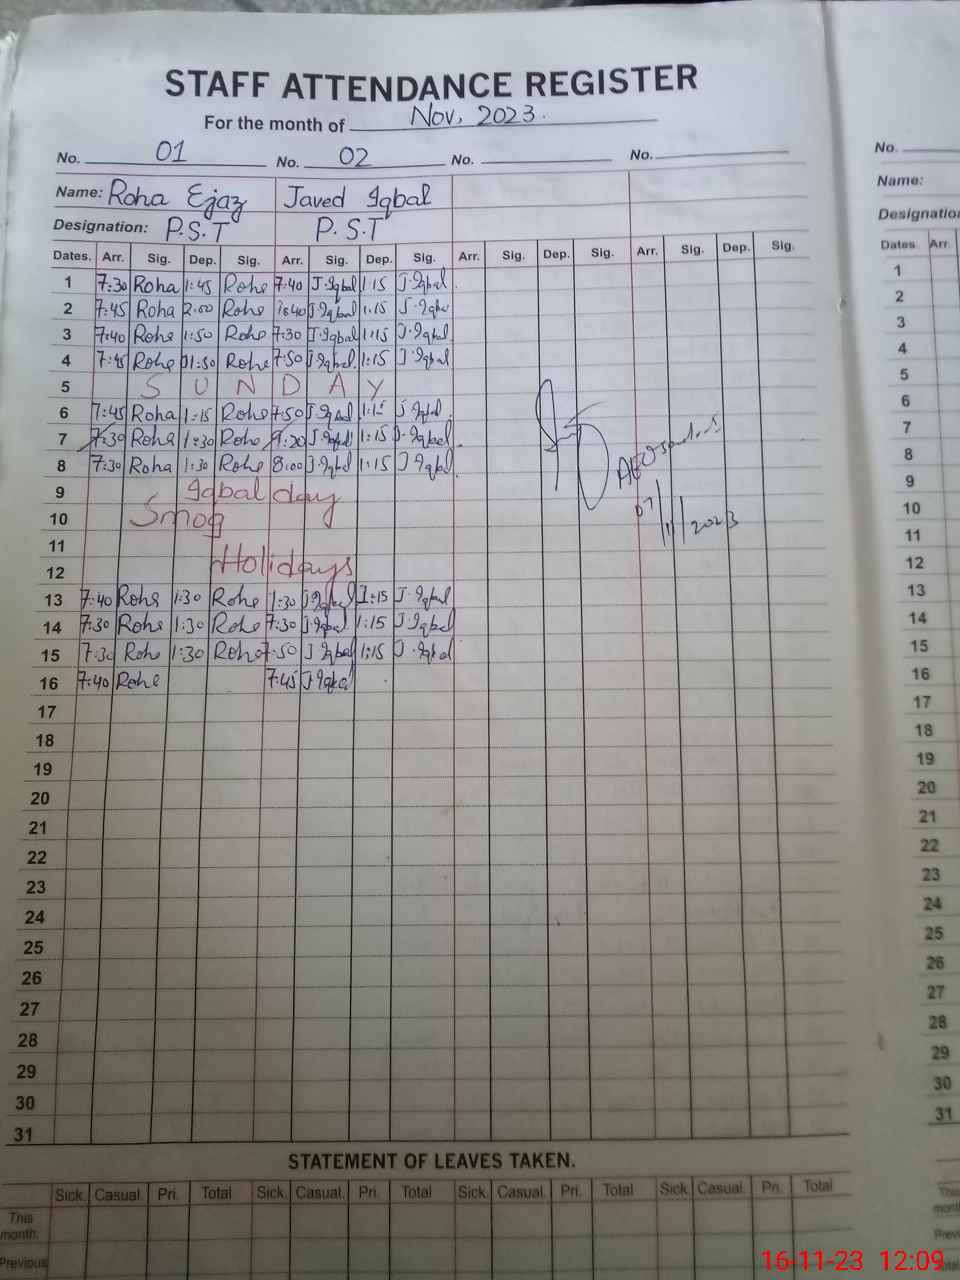 STAFF ATTENDANCE REGISTER
For the month of Nov, 2023.
No. 01 No. 02 No. No.
Name: Roha Ejaz Javed Iqbal
Designation: P.S.T P.S.T
Dates. Arr. Sig. Dep. Sig. Arr. Sig. Dep. Sig. Arr. Sig. Dep. Sig. Arr. Sig. Dep. Sig.
1 7:30 Roha 1:45 Rohe 7:40 J.Iqbal 1:15 J.Iqbal
2 7:45 Roha 2:00 Rohe J.Iqbal 1:15 J.Iqbal
3 7:40 Rohe 1:50 Rohe 7:30 J.Iqbal 1:15 J.Iqbal
4 7:45 Rohe 11:50 Rohe 7:50 J.Iqbal 1:15 J.Iqbal
5 SUNDAY
6 7:45 Roha 1:15 Rohe 7:50 J.Iqbal 1:15 J.Iqbal
7 7:30 Roha 1:30 Rohe 9:20 J.Iqbal 1:15 J.Iqbal
8 7:30 Roha 1:30 Rohe 8:00 J.Iqbal 1:15 J.Iqbal
9 Iqbal day
10 Smog
11
12 Holidays
13 7:40 Rohe 1:30 Rohe 1:30 J.Iqbal 1:15 J.Iqbal
14 7:30 Rohe 1:30 Rohe 7:30 J.Iqbal 1:15 J.Iqbal
15 7:30 Rohe 1:30 Rohe 7:50 J.Iqbal 1:15 J.Iqbal
16 7:40 Rohe 7:45 J.Iqbal
17
18
19
20
21
22
23
24
25
26
27
28
29
30
31
07/11/2023
STATEMENT OF LEAVES TAKEN.
Sick. Casual. Pri. Total Sick. Casual. Pri. Total Sick. Casual. Pri. Total Sick. Casual. Pri. Total
This month.
Previous
No.
Name:
Designation
Dates. Arr.
1
2
3
4
5
6
7
8
9
10
11
12
13
14
15
16
17
18
19
20
21
22
23
24
25
26
27
28
29
30
31
This
16-11-23 12:09